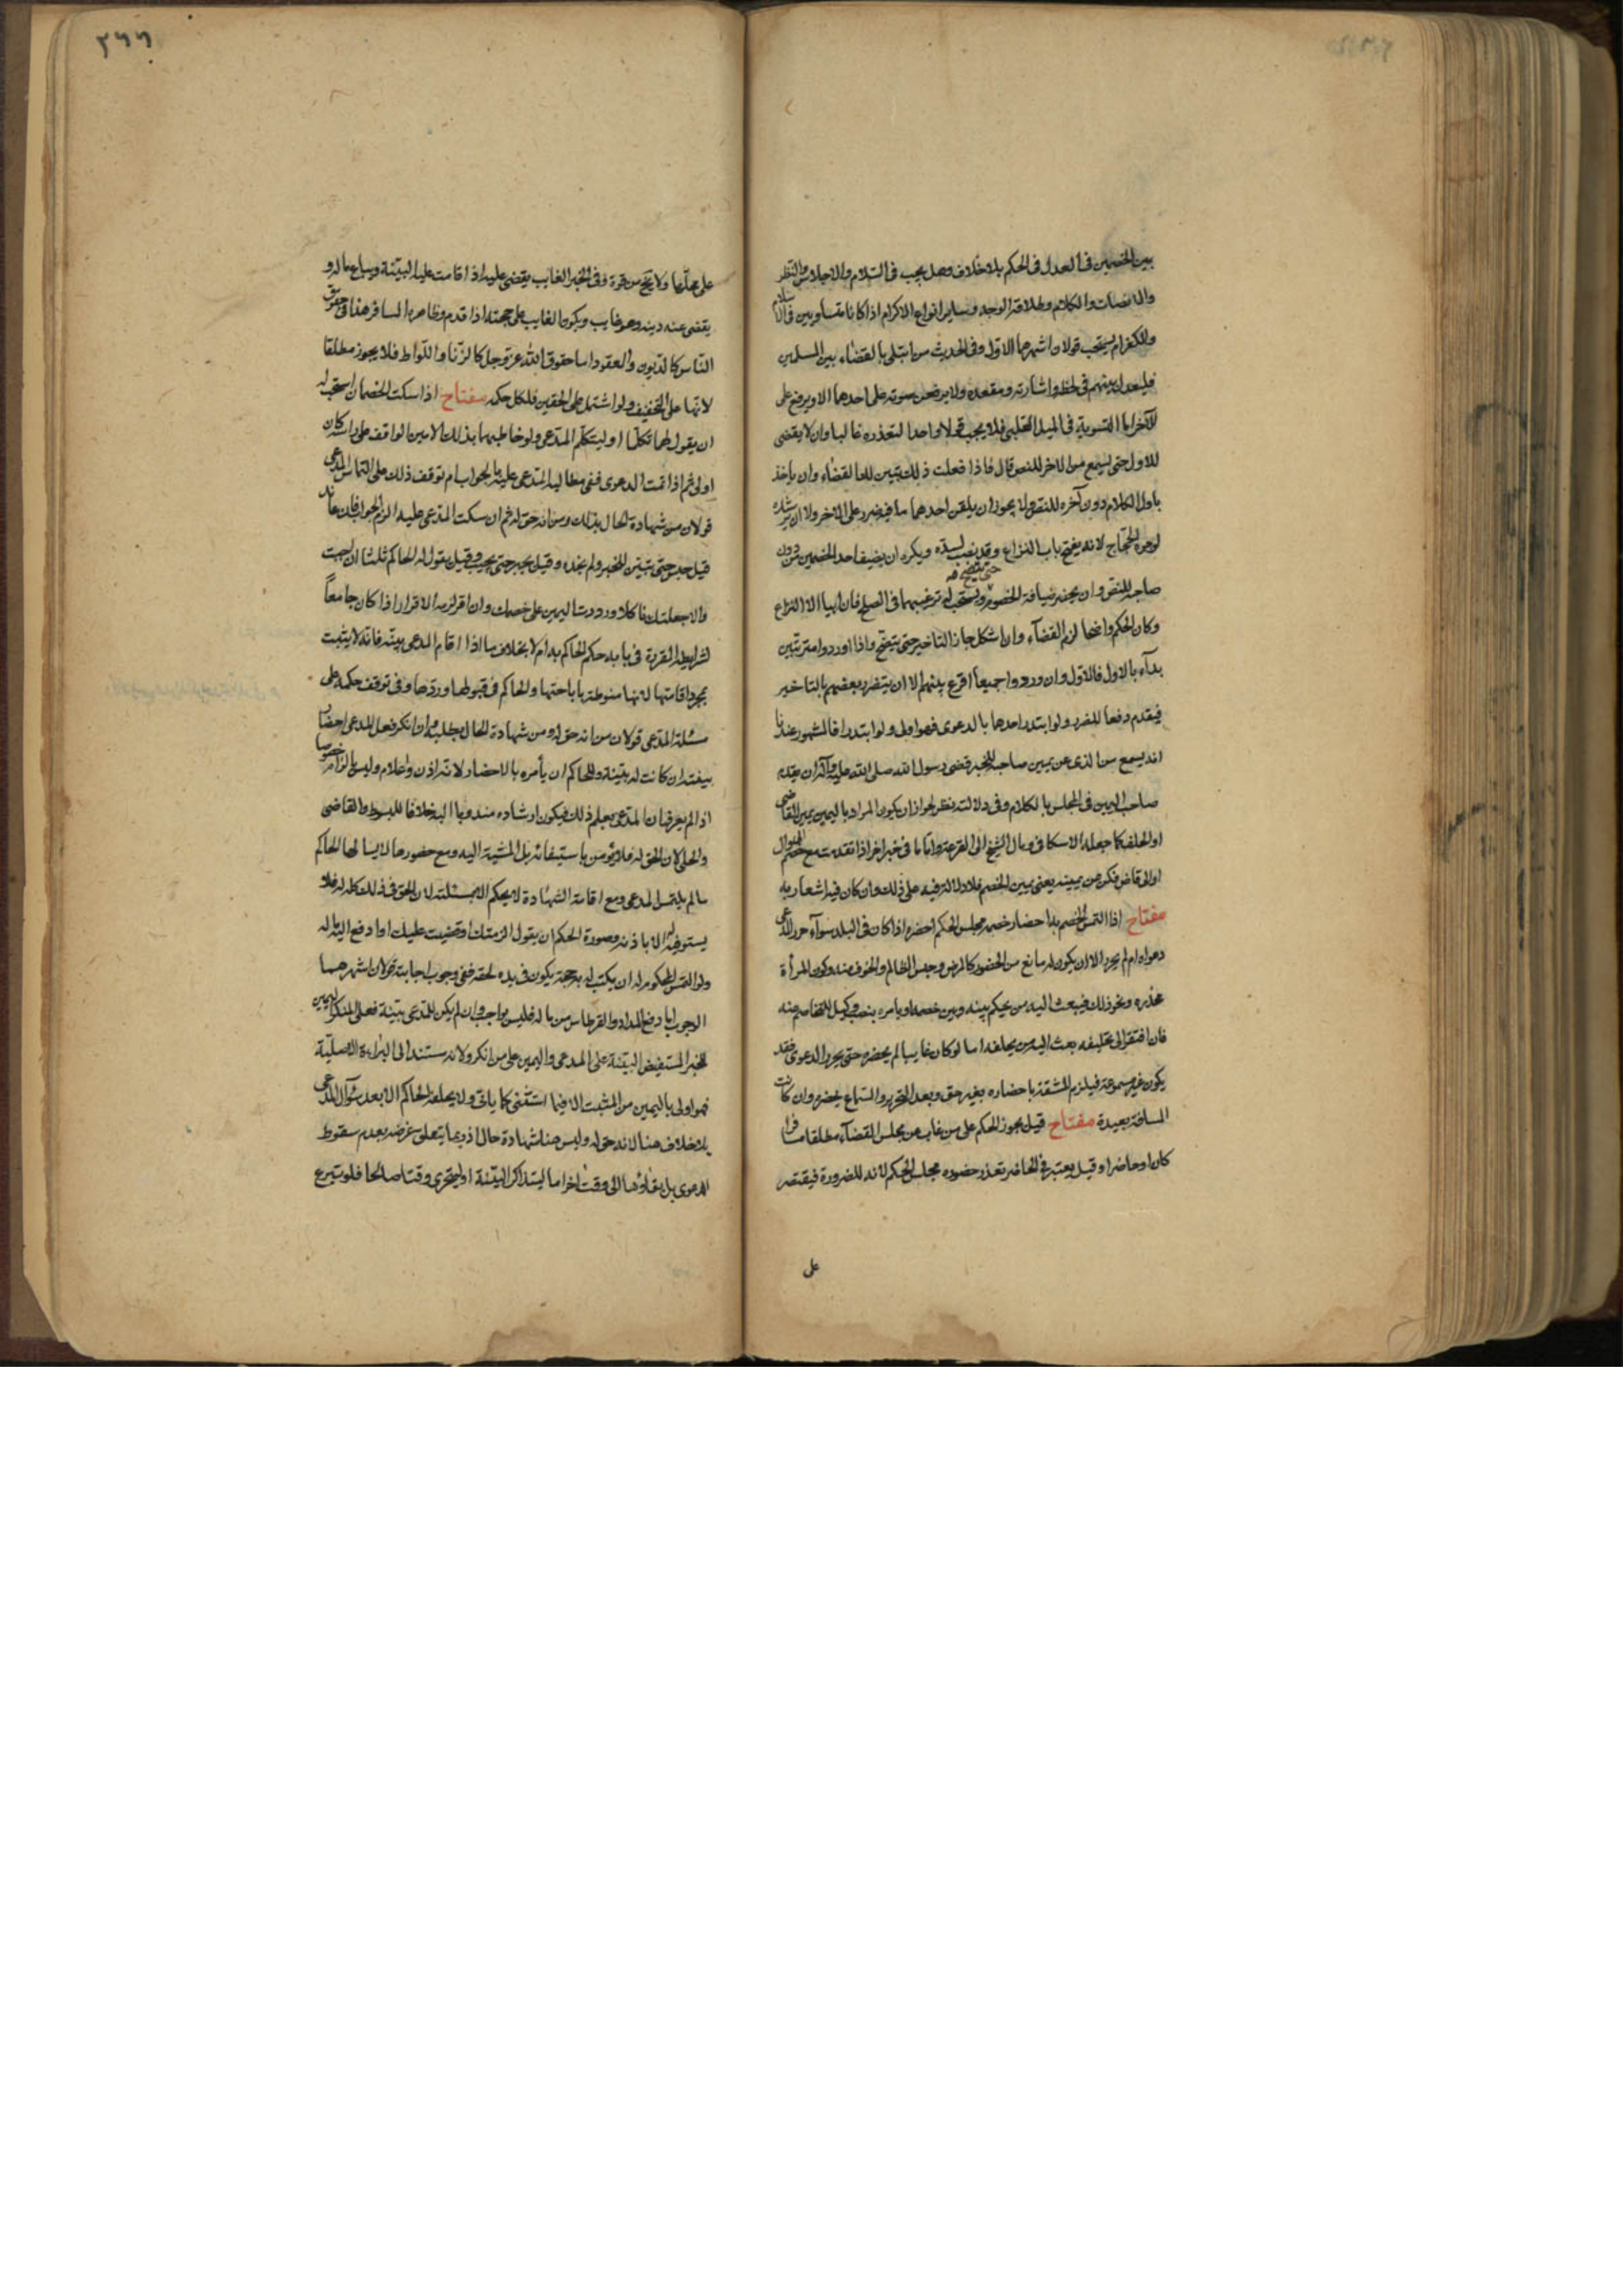 بين الخصمين فى العدل فى الحكم بلا خلاف وهل يجب فى السلام والاجلاس والنظر
والانصات والكلام وطلاقة الوجه وساير انواع الاكرام اذا كانا متساويين فى الاسلام
والكفر ام يستحب قولان اشهرهما الاول وفى الحديث من ابتلى بالقضاء بين المسلمين
فليعدل بينهم فى لحظه واشارته ومقعده ولا يرفعن صوته على احدهما الا ويرفع على
الآخر اما التسوية فى الميل القلبى فلا يجب قولا واحدا لتعذره غالبا وان لا يقضى
للاول حتى يسمع من الاخر للنص قال فاذا فعلت ذلك تبين لك القضاء وان ياخذ
باول الكلام دون آخره للنص ولا يجوز ان يلقن احدهما ما فيه ضرر على الاخر ولا ان يرشده
لوجوه الحجاج لانه يفتح باب النزاع وقد نصب لسده ويكره ان يضيف احد الخصمين دون
صاحبه للنص وان يحضر ضيافة الخصوم ويستحب له ترغيبهما فى الصلح فان ابيا الا النزاع
حتى يتضح
وكان الحكم واضحا لزم القضآء وان اشكل جاز التاخير حتى يتضح واذا اوردوا مترتبين
بدآء بالاول فالاول وان وردوا جميعا اقرع بينهم الا ان يتضرر بعضهم بالتاخير
فيقدم دفعا للضرر ولو ابتدر احدهما بالدعوى فهو اولى ولو ابتدرا فالمشهور عندنا
انه يسمع من الذى عن يمين صاحبه للخبر قضى رسول الله صلى الله عليه وآله ان يقدم
صاحب اليمين فى المجلس بالكلام وفى دلالته نظر لجواز ان يكون المراد باليمين يمين القاضى
او الحلف كما جعله الاسكافى ومال الشيخ الى القرعة واما ما فى خبر اخر اذا تقدمت مع خصم الى وال
او الى قاض فكن عن يمينه يعنى يمين الخصم فلا دلالة فيه على ذلك وان كان فيه اشعار به
مفتاح اذا التمس الخصم احضار خصمه مجلس الحكم احضره اذا كان فى البلد سوآء حرر المدعى
دعواه ام لم يحرر الا ان يكون له مانع من الحضور كالمرض وحبس الظالم والخوف منه وكون المرأة
مخدره ونحو ذلك فيبعث اليه من يحكم بينه وبين خصمه او يامره بنصب وكيل للتخاصم عنه
فان افتقر الى تحليفه بعث اليه من يحلفه اما لو كان غايبا لم يحضره حتى يحرر الدعوى فقد
يكون غير مسموعة فيلزم المشقة باحضاره بغير حق وبعد التحرير والسماع يحضره وان كانت
المسافة بعيدة مفتاح قيل يجوز الحكم على من غاب عن مجلس القضآء مطلقا مسافرا
كان او حاضرا وقيل يعتبر فى الحاضر تعذر حضوره مجلس الحكم لانه للضرورة فيقتصر
على
٢٦٦
على محلها ولا يخ من قوة وفى الخبر الغايب يقضى عليه اذا قامت عليه البينة ويباع ماله و
يقضى عنه دينه وهو غايب ويكون الغايب على حجته اذا قدم وظاهره المسافر هذا فى حقوق
الناس كالديون والعقود اما حقوق الله عز وجل كالزنا واللواط فلا يجوز مطلقا
لانها على التخفيف ولو اشتمل على الحقين فلكل حكمه مفتاح اذا سكت الخصمان استحب له
ان يقول لهما تكلما او ليتكلم المدعى ولو خاطبهما بذلك الامين الواقف على راسه كان
اولى ثم اذا تمت الدعوى ففى مطالبة المدعى عليه بالجواب ام توقف ذلك على التماس المدعى
قولان من شهادة الحال بذلك ومن انه حق له ثم ان سكت المدعى عليه الزم الجواب فان عاند
قيل حبس حتى يتبين للخبر ولم نجده وقيل يجبر حتى يجيب وقيل يقول له الحاكم ثلثا ان اجبت
والا جعلتك ناكلا ورددت اليمين على خصمك وان اقر لزمه الاقرار اذا كان جامعاً
لشرايطه المقررة فى بابه حكم الحاكم به ام لا بخلاف ما اذا اقام المدعى بينه فانه لا يثبت
بمجرد اقامتها لانها منوطة باباحتها والحاكم فى قبولها وردها وفى توقف حكمه على
مسئلة المدعى قولان من انه حق له ومن شهادة الحال بطلبه وان انكر فعل المدعى احضار
بينته ان كانت له بينة وللحاكم ان يأمره بالاحضار لانه اذن واعلام وليس بالزام خصوصا
اذا لم يعرف ان المدعى يعلم ذلك فيكون ارشاده مندوبا اليه خلافا للمبسوط والقاضى
والحلى لان الحق له فلا يؤمن باستيفائه بل المشية اليه ومع حضورها لا يسالها الحاكم
ما لم يلتمس المدعى ومع اقامة الشهادة لا يحكم الا بمسئلته لان الحق فى ذلك كله له فلا
يستوفيه الا باذنه وصورة الحكم ان يقول الزمتك او قضيت عليك او ادفع اليه ماله
ولو التمس المحكوم له ان يكتب له به حجة يكون فى يده لحقه ففى وجوب اجابته قولان اشهرهما
الوجوب اما دفع المداد والقرطاس من ماله فليس بواجب وان لم يكن للمدعى بينة فعلى المنكر اليمين
للخبر المستفيض البينة على المدعى واليمين على من انكر ولانه مستند الى البراءة الاصلية
فهو اولى باليمين من المثبت الا فيما استثنى كما ياتى ولا يحلفه الحاكم الا بعد سؤال المدعى
بلا خلاف هنا لانه حق له وليس هنا شهادة حال اذ ربما يتعلق غرضه بعدم سقوط
الدعوى بل بقاؤها الى وقت اخر اما ليتذاكر البينة او ليتحرى وقتا صالحا فلو تبرع